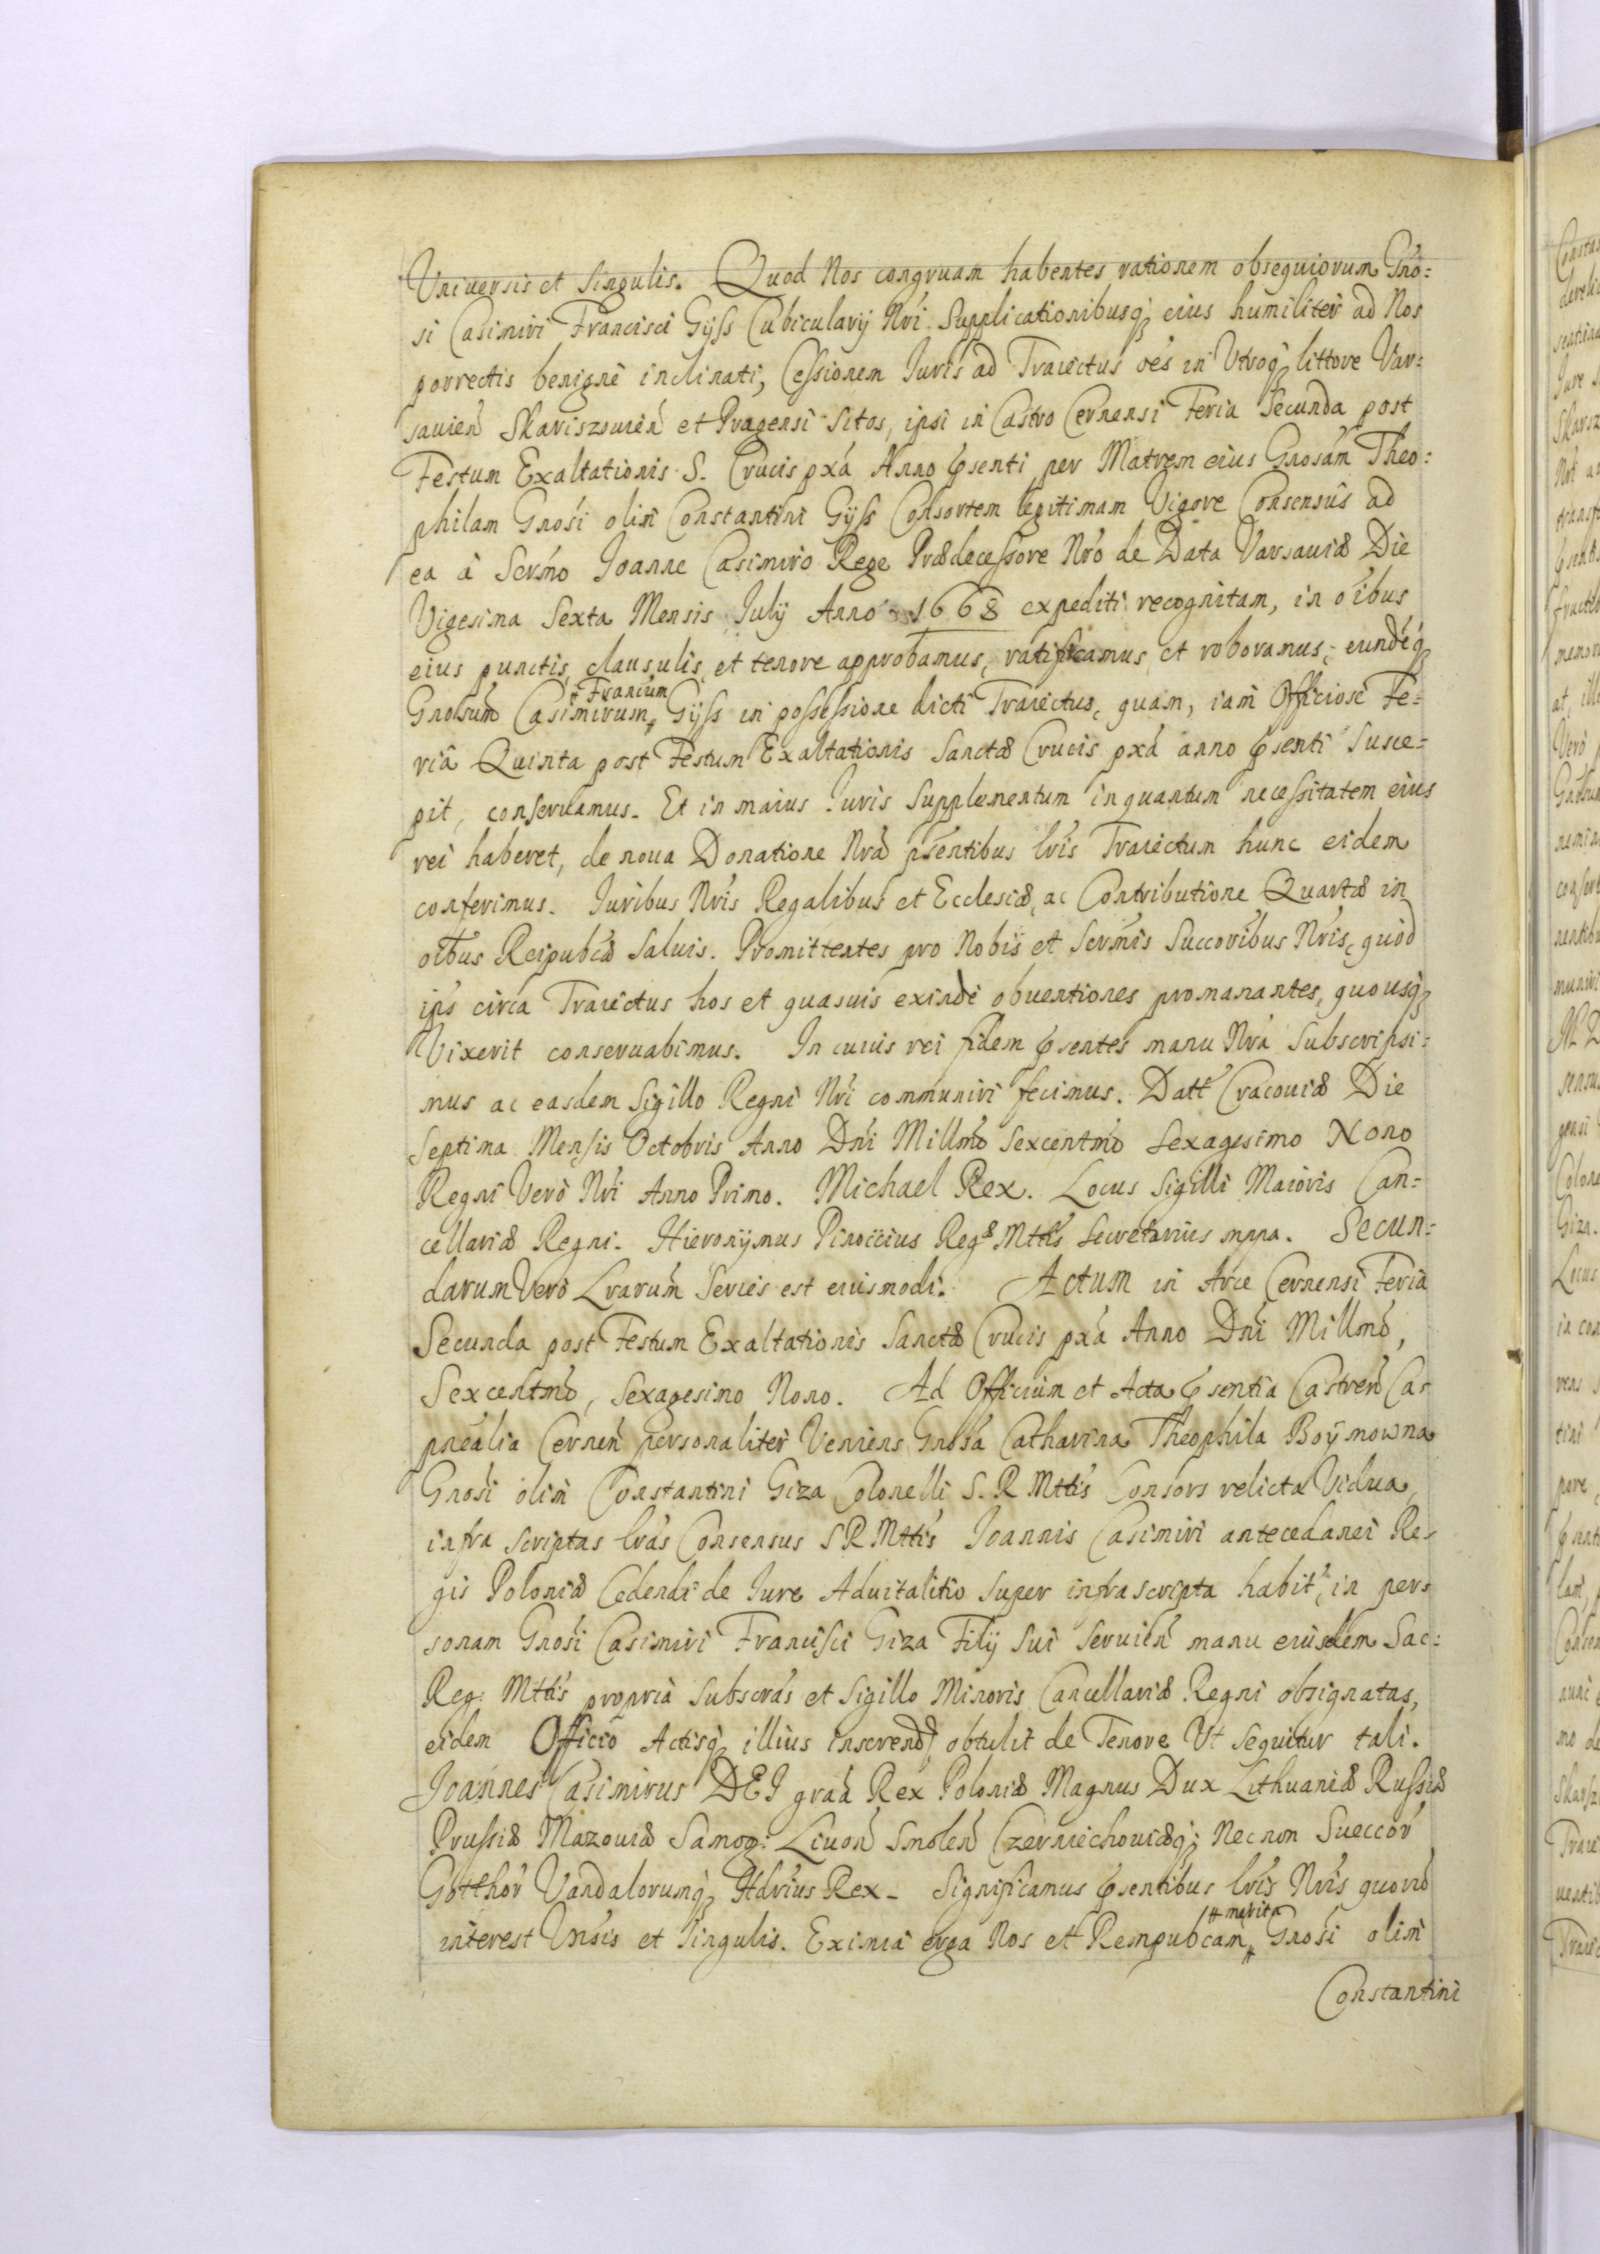 Vniuersis et Singulis. Quod Nos congruam habentes rationem obsequiorum Gnō:
si Casimiri Francisci Gijss Cubicularij Nri Supplicationibusq; eius humiliter ad Nos
porrectis benignè inclinati, Cessionem Iuris ad Traiectus oēs in Utroq; littore Var:
sauien Skariszouień et Pragensi sitos, ipsi in Castro Cernensi Feria Secunda post
Festum Exaltationis S. Crucis pxá Anno pśenti per Matrem eius Gnosám Theo:
philam Gnosi olim Constantini Gijss Consortem legitimam Vigore Consensûs ad
ea à Sermo Joanne Casimiro Rege Prædecessore Nrō de Data Varsauiæ Die
Vigesima Sexta Mensis Iulij Anno 1668 expediti recognitam, in oibus
eius punctis, clausulis, et tenore approbamus, ratificamus, et roboramus; eundéq;
Gnosum Casimirum # Francūm Gijss in possessione dicti Traiectus, quam, iam Officiosè Fe:
riâ Quinta post Festum Exaltationis Sanctæ Crucis pxá anno pśenti susce:
pit, conseruamus. Et in maius Iuris Supplementum inquantum necessitatem eius
rei haberet, de noua Donatione Nrā pśentibus lris Traiectum hunc eidem
conferimus. Iuribus Nris Regalibus et Ecclesiæ, ac Contributione Quartæ in
oibus Reipubcæ saluis. Promittentes pro Nobis et Sermis Succoribus Nris, quòd
ips circa Traiectus hos et quasuis exinde obuentiones promanantes, quousq;
Vixerit conseruabimus. In cuius rei fidem pśentes manu Nrá Subscripsi:
mus ac easdem Sigillo Regni Nri communiri fecimus. Datt Cracouiæ Die
Septima Mensis Octobris Anno Dni Millmo Sexcentmo Sexagesimo Nono
Regni Verò Nri Anno Primo. Michael Rex. Locus Sigilli Maioris Can:
cellariæ Regni. Hieronijmus Pinoccius Regæ Mttis Secretarius mppa. Secun:
darum Verò Lrarum Series est eiusmodi. Actum in Arce Cernensi Feria
Secunda post Festum Exaltationis Sanctæ Crucis pxá Anno Dni Millmo,
Sexcentmo, Sexagesimo Nono. Ad Officium et Acta pśentia Castren Cas
pnealia Cernen personaliter Veniens Gnosa Catharina Theophila Boÿmowna
Gnosi olim Constantini Giza Colonelli S. R Mttis Consors relicta Vidua,
infra scriptas lras Consensus S R Mttis Joannis Casimiri antecedanei Re:
gis Poloniæ Cedendi de Iure Aduitalitio super infrascripta habit, in per:
sonam Gnosi Casimiri Francisci Giza Filij sui seruien manu eiusdem Sac:
Reg: Mttis propria Subscrás et Sigillo Minoris Cancellariæ Regni obsignatas,
eidem Officio Actisq; illius inserend obtulit de Tenore Ut sequitur tali.
Joannes Casimirus DEI gra Rex Poloniæ Magnus Dux Lithuaniæ Russiæ
Prussiæ Mazouiæ Samog: Liuon Smolen Czerniechouiæq; Necnon Sueccor
Gotthor Vandalorumq; Hdrius Rex. Significamus pśentibus lris Nris quorū
interest Vnsis et singulis. Eximia erga Nos et Rempubcam # merita Gnosi olim
Constantini